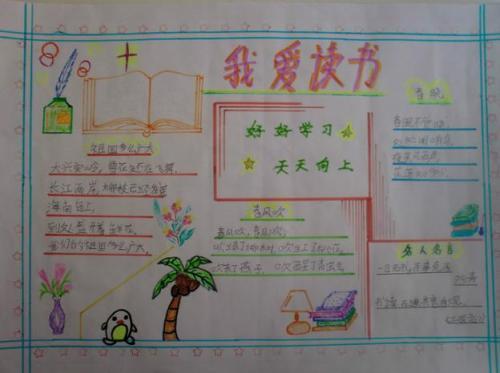 我爱读书
好好学习
天天向上
祖国多么广大
大兴安岭，雪花还在飞舞，
长江两岸，柳枝已经发芽
海南岛上，
到处盛开着鲜花，
我们的祖国多么广大。
春风吹
春风吹，春风吹，
吹绿了柳树，吹红了桃花，
吹来了燕子，吹醒了青蛙。
春晓
春眠不觉晓，
处处闻啼鸟。
名人名言